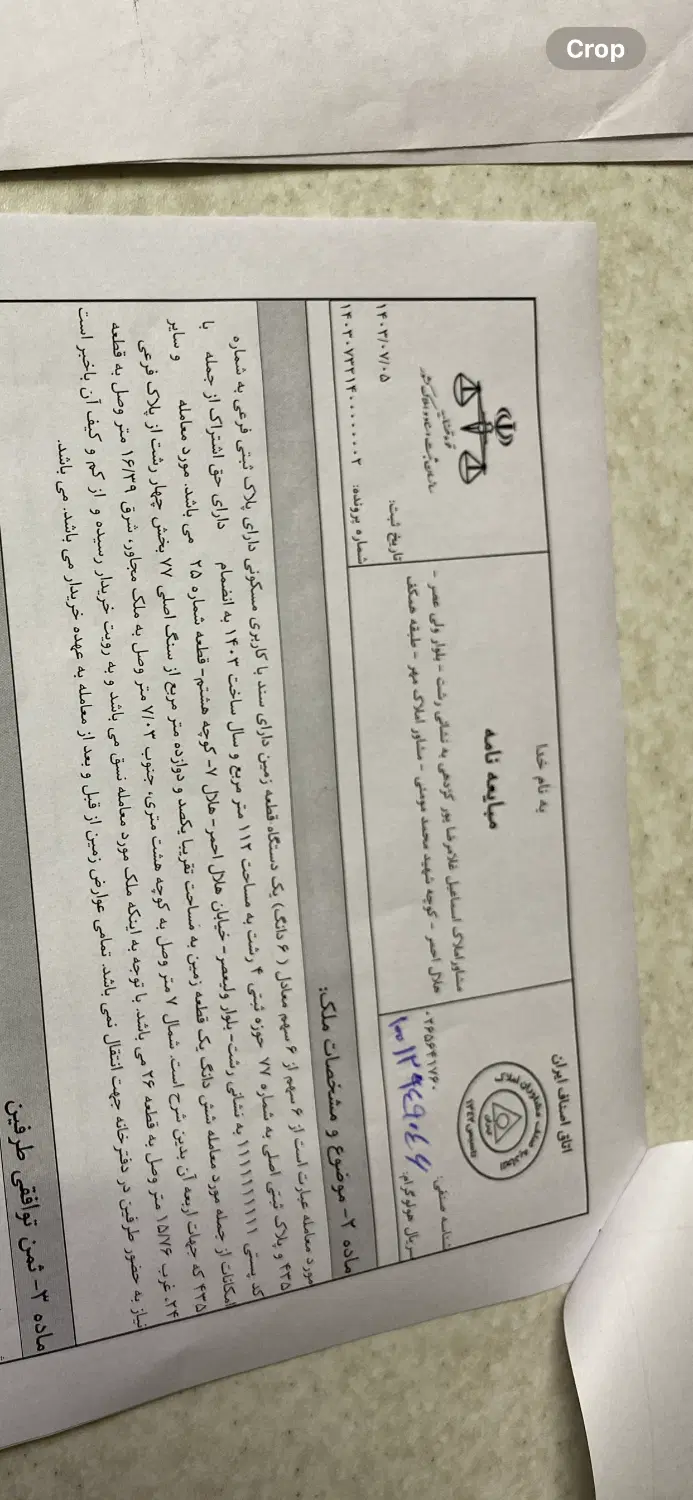 Crop
به نام خدا
اتاق اصناف ایران
مبایعه نامه
مشاور املاک اسماعیل غلامرضا پور کژدهی به نشانی رشت - بلوار ولی عصر -
هلال احمر - کوچه شهید محمد مومنی - مشاور املاک مهر - طبقه همکف
تاریخ ثبت:
۱۴۰۳/۰۷/۰۵
شماره پرونده:
شناسه صنفی:
۰۲۶۵۶۴۱۷۶۰
سریال هولوگرام:
ماده ۲- موضوع و مشخصات ملک:
مورد معامله عبارت است از ۶ سهم از ۶ سهم معادل (۶ دانگ) یک دستگاه قطعه زمین دارای سند با کاربری مسکونی دارای پلاک ثبتی فرعی به شماره
۴۳۵ و پلاک ثبتی اصلی به شماره ۷۷ حوزه ثبتی ۴ رشت به مساحت ۱۱۲ متر مربع و سال ساخت ۱۴۰۳ به انضمام دارای حق اشتراک از جمله با
کد پستی ۱۱۱۱۱۱۱۱۱۱ به نشانی رشت- بلوار ولیعصر- خیابان هلال احمر- هلال ۷- کوچه هشتم- قطعه شماره ۲۵ می باشد. مورد معامله و سایر
امکانات از جمله مورد معامله شش دانگ یک قطعه زمین به مساحت تقریبا یکصد و دوازده متر مربع از سنگ اصلی ۷۷ بخش چهار رشت از پلاک فرعی
۴۳۵ که جهات اربعه آن بدین شرح است. شمال ۷ متر وصل به کوچه هشت متری، جنوب ۷/۰۳ متر وصل به ملک مجاور، شرق ۱۶/۳۹ متر وصل به قطعه
۲۴، غرب ۱۵/۷۶ متر وصل به قطعه ۲۶ می باشد. با توجه به اینکه ملک مورد معامله نسق می باشد و به رویت خریدار رسیده و از کم و کیف آن باخبر است
نیاز به حضور طرفین در دفترخانه جهت انتقال نمی باشد. تمامی عوارض زمین از قبل و بعد از معامله به عهده خریدار می باشد. می باشد.
ماده ۳- ثمن توافقی طرفین